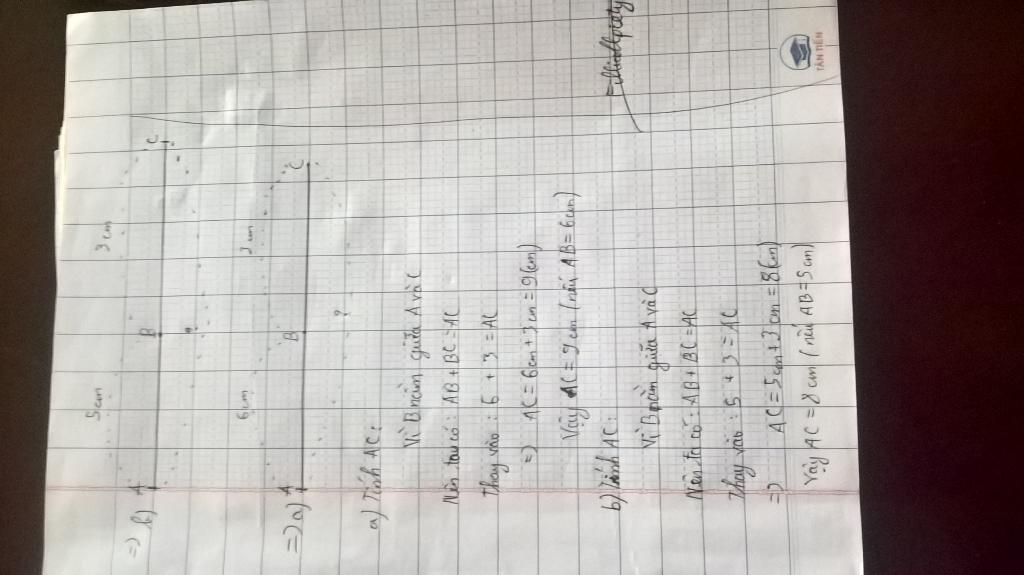 5cm 3cm
=> b) A B C
?
6cm 3cm
=> a) A B C
?
a) Tính AC:
Vì B nằm giữa A và C
Nên ta có: AB + BC = AC
Thay vào: 6 + 3 = AC
=> AC = 6cm + 3cm = 9(cm)
Vậy AC = 9cm (nếu AB = 6cm)
b) Tính AC:
Vì B nằm giữa A và C
Nên ta có: AB + BC = AC
Thay vào: 5 + 3 = AC
=> AC = 5cm + 3cm = 8(cm)
Vậy AC = 8cm (nếu AB = 5cm)
TÂN TIẾN